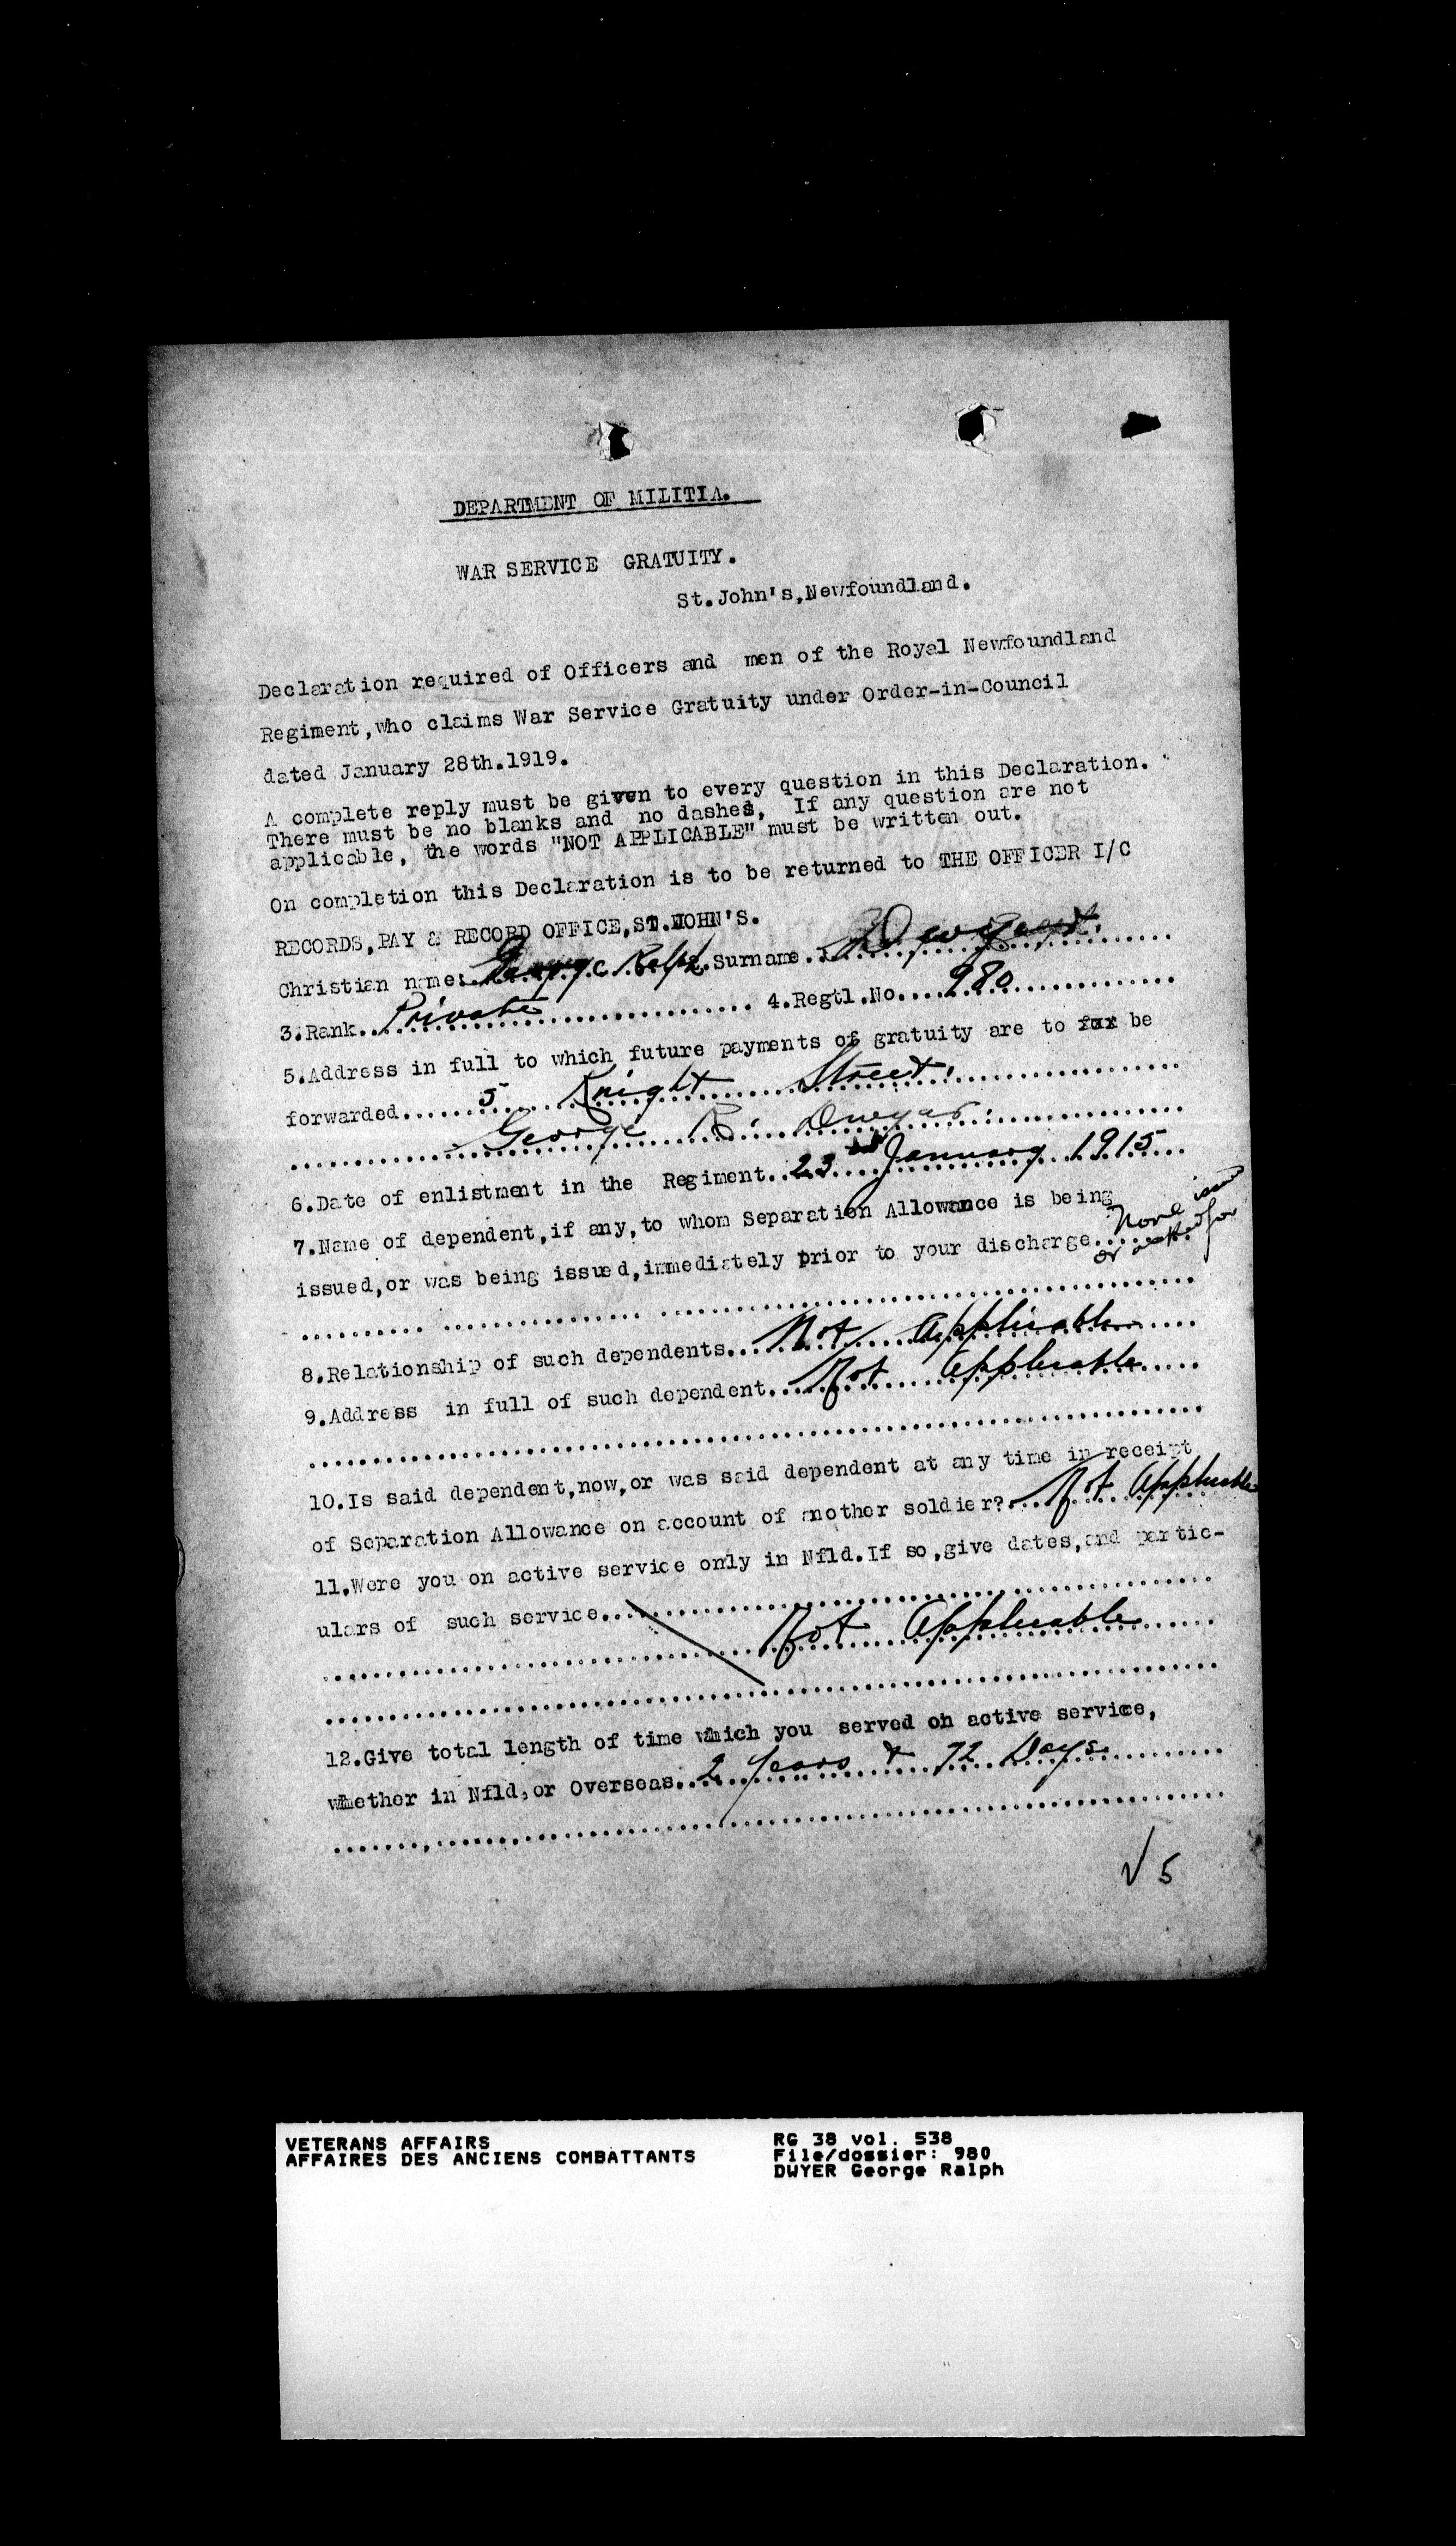 DEPARTMENT OF MILITIA.
WAR SERVICE GRATUITY.
St.John's,Newfoundland.
Declaration required of Officers and men of the Royal Newfoundland
Regiment,who claims War Service Gratuity under Order-in-Council
dated January 28th.1919.
A complete reply must be given to every question in this Declaration.
There must be no blanks and no dashes, If any question are not
applicable, the words "NOT APPLICABLE" must be written out.
On completion this Declaration is to be returned to THE OFFICER I/C
RECORDS,PAY & RECORD OFFICE,ST.JOHN'S.
Christian name: George Ralph. Surname..
3.Rank..Private.......... 4.Regtl.No....980..........
5.Address in full to which future payments of gratuity are to be
forwarded......5 Knight Street.
George R. Dwyer
6.Date of enlistment in the Regiment..23rd January 1915...
7.Name of dependent,if any,to whom Separation Allowance is being
issued,or was being issued,immediately prior to your discharge....None
or asked for
8.Relationship of such dependents...Not Applicable
9.Address in full of such dependent...Not Applicable
10.Is said dependent,now,or was said dependent at any time in receipt
of Separation Allowance on account of another soldier?..Not Applicable
11.Were you on active service only in Nfld.If so,give dates,and partic-
ulars of such service..
Not Applicable
12.Give total length of time which you served on active service,
whether in Nfld,or Overseas..2 years & 72 Days
√ 5
VETERANS AFFAIRS
AFFAIRES DES ANCIENS COMBATTANTS
RG 38 vol. 538
File/dossier: 980
DWYER George Ralph